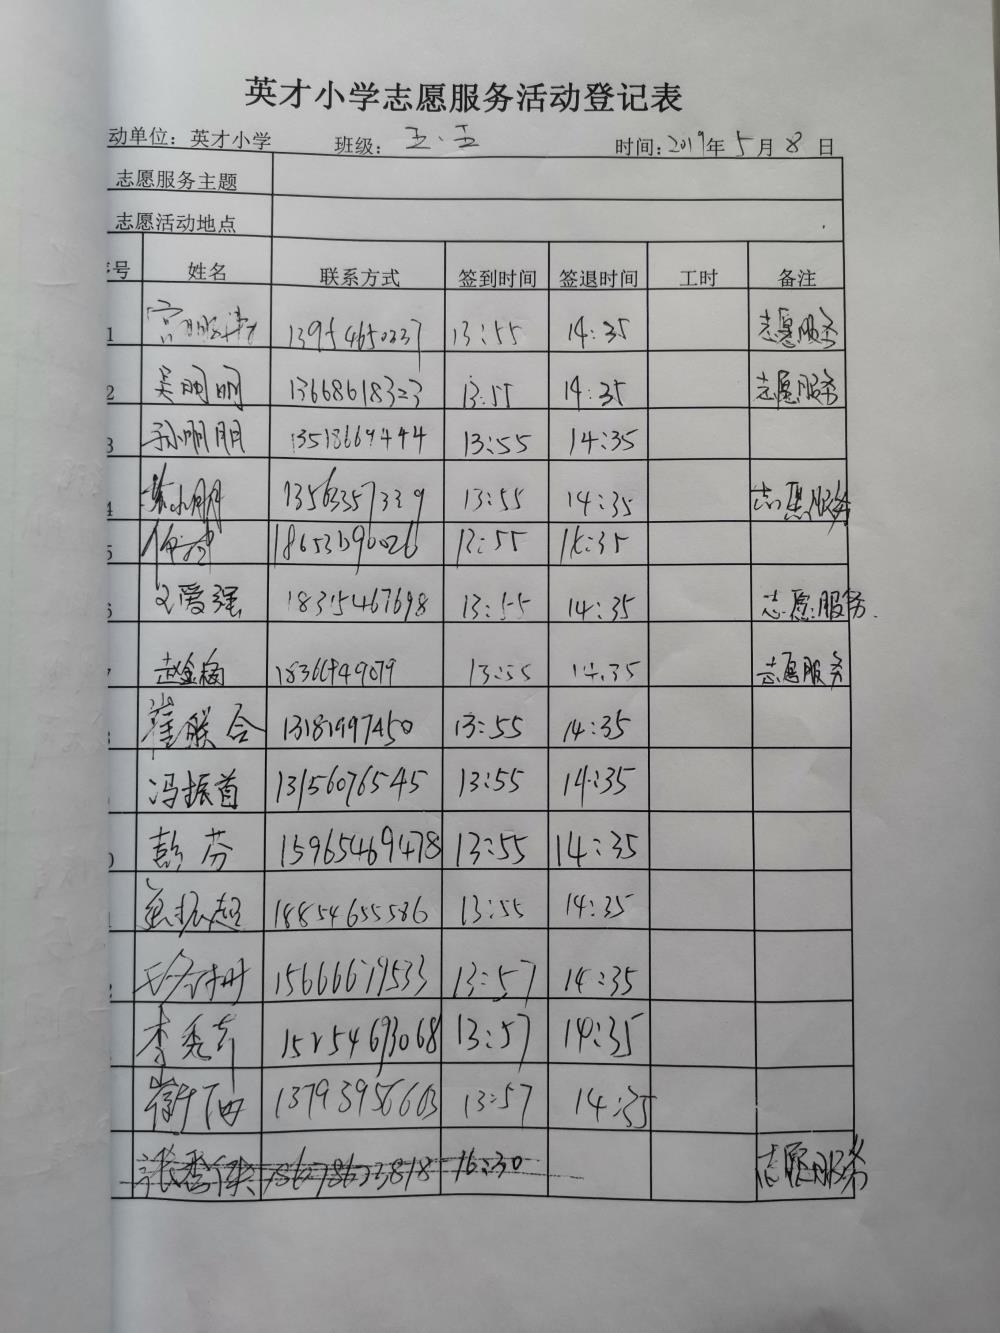 英才小学志愿服务活动登记表
动单位：英才小学 班级：五.五 时间：2019年5月8日
志愿服务主题
志愿活动地点
号 姓名 联系方式 签到时间 签退时间 工时 备注
1 宫 13954650237 13:55 14:35 志愿服务
2 吴明明 13668618323 13:55 14:35 志愿服务
3 孙明明 13518669444 13:55 14:35
4 小明 13563357339 13:55 14:35 志愿服务
5 13:55 14:35
6 文爱强 18315467698 13:55 14:35 志愿服务.
7 赵金梅 13:55 14:35 志愿服务
崔联合 13181997450 13:55 14:35
冯振首 13156076545 13:55 14:35
0 彭芬 15965469478 13:55 14:35
振超 18854655586 13:55 14:35
2 15666619533 13:57 14:35
李秀 15254693068 13:57 14:35
13793956603 13:57 14:35
张秀 16:30 志愿服务